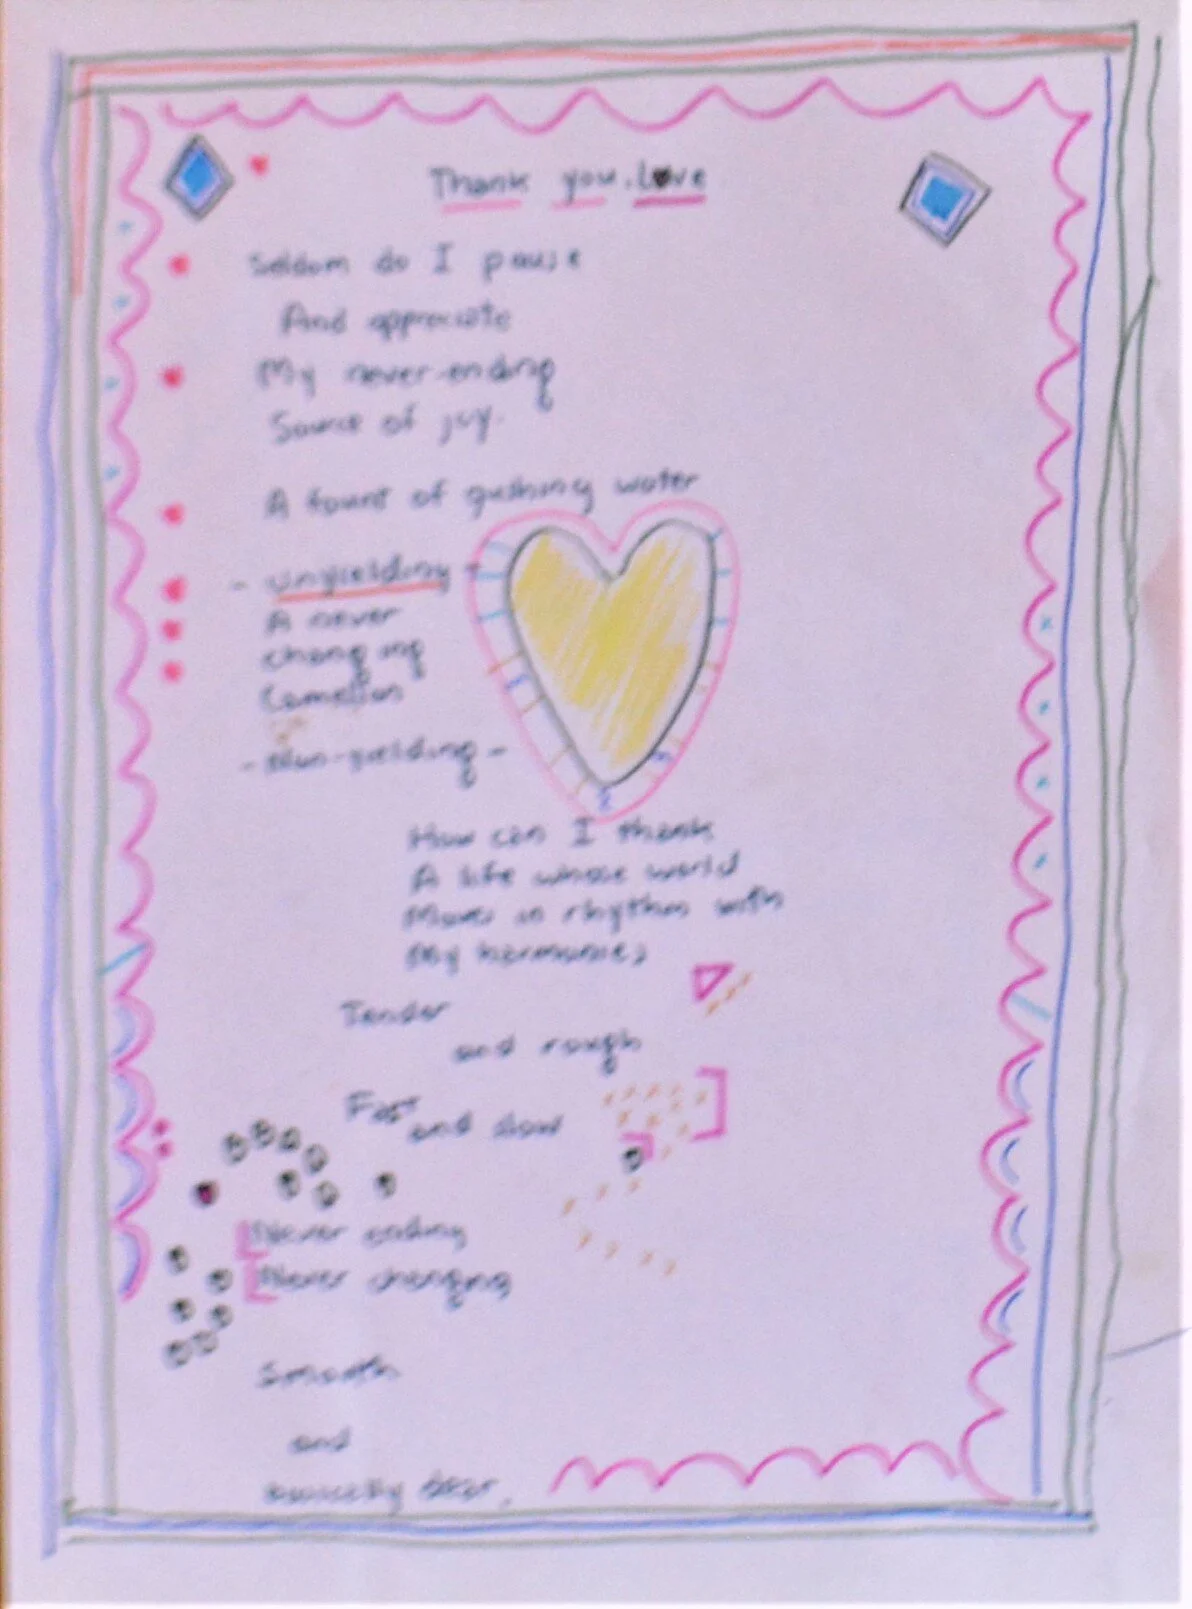 Thank you. Love
Seldom do I pause
And appreciate
My never-ending
Source of joy.
A fount of gushing water
- unyielding -
A never
changing
Camelion
- Non-yielding -
How can I thank
A life whose world
Moves in rhythm with
My harmonies
Tender
and rough
Fast
and slow
Never ending
Never changing
Smooth
and
dear.